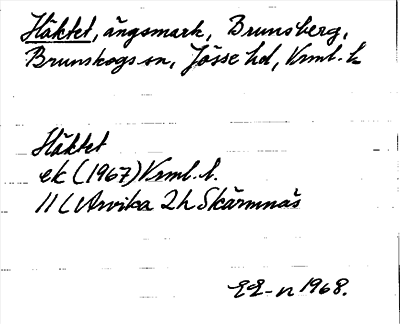 Häktet, ängsmark, Brunsberg,
Brunskogs sn, Jösse hd, Vrml. l.
Häktet
ek (1967) Vrml. l.
11C Arvika 2h Skärmnäs
EE-n 1968.